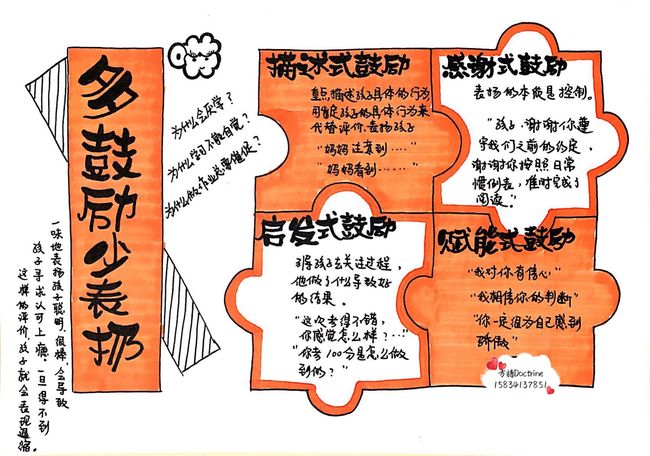 多鼓励少表扬
为什么会厌学?
为什么学习不能自觉?
为什么做作业总需催促?
一味地表扬孩子聪明、很棒,会导致
孩子寻求认可上瘾,一旦得不到
这样的评价,孩子就会表现退缩。
描述式鼓励
重点,描述孩子具体的行为,
用肯定孩子的具体行为来
代替评价、表扬孩子
"妈妈注意到……"
"妈妈看到……"
感谢式鼓励
表扬的本质是控制。
"孩子,谢谢你遵
守我们之前的约定,
谢谢你按照日常
惯例表,准时完成了
阅读。"
启发式鼓励
引导孩子去关注过程,
他做了什么导致好
的结果。
"这次考得不错,
你感觉怎么样?…"
"你考100分是怎么做
到的?"
赋能式鼓励
"我对你有信心"
"我相信你的判断"
"你一定很为自己感到
骄傲"
Doctrine
15834137851